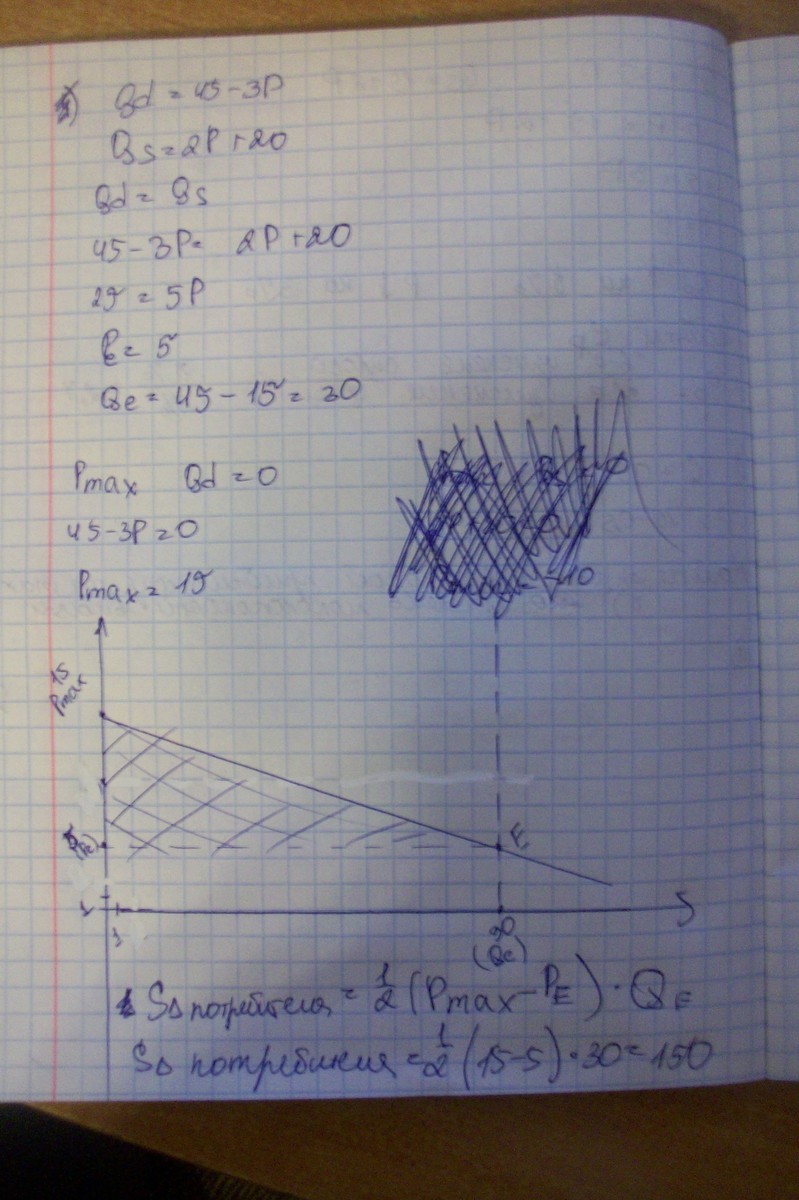 Qd = 45 - 3P
Qs = 2P + 20
Qd = Qs
45 - 3P = 2P + 20
25 = 5P
P = 5
Qe = 45 - 15 = 30
Pmax Qd = 0
45 - 3P = 0
Pmax = 15
15
Pmax
5
(Pe)
E
1
1
30
(Qe)
S∆ потребителя = 1/2 (Pmax - PE) · QE
S∆ потребителя = 1/2 (15 - 5) · 30 = 150